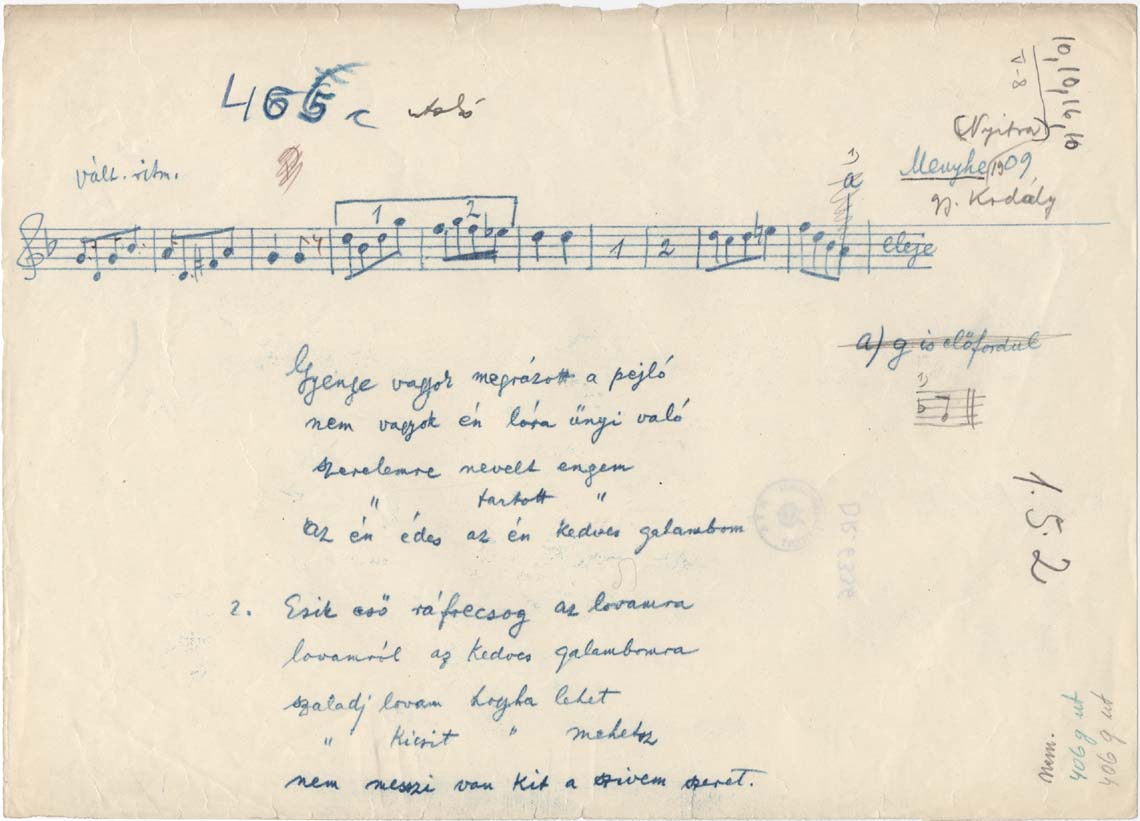 466 c utolsó
10, 10, 16, 10
V-8
(Nyitra)
vált. ritm.
Menyhe 1909
gy. Kodály
1)
a
1 2
1 2 eleje
a) g is előfordul
1)
Gyenge vagyok megrázott a pejló
nem vagyok én lóra űnyi való
szerelemre nevelt engem
" tartott "
az én édes az én kedves galambom
2. Esik eső ráfrecsog az lovamra
lovamról az kedves galambomra
szaladj lovam hogyha lehet
" kicsit " mehetsz
nem messzi van kit a szivem szeret.
1.5.2
nem.
406 g ut
406 g ut